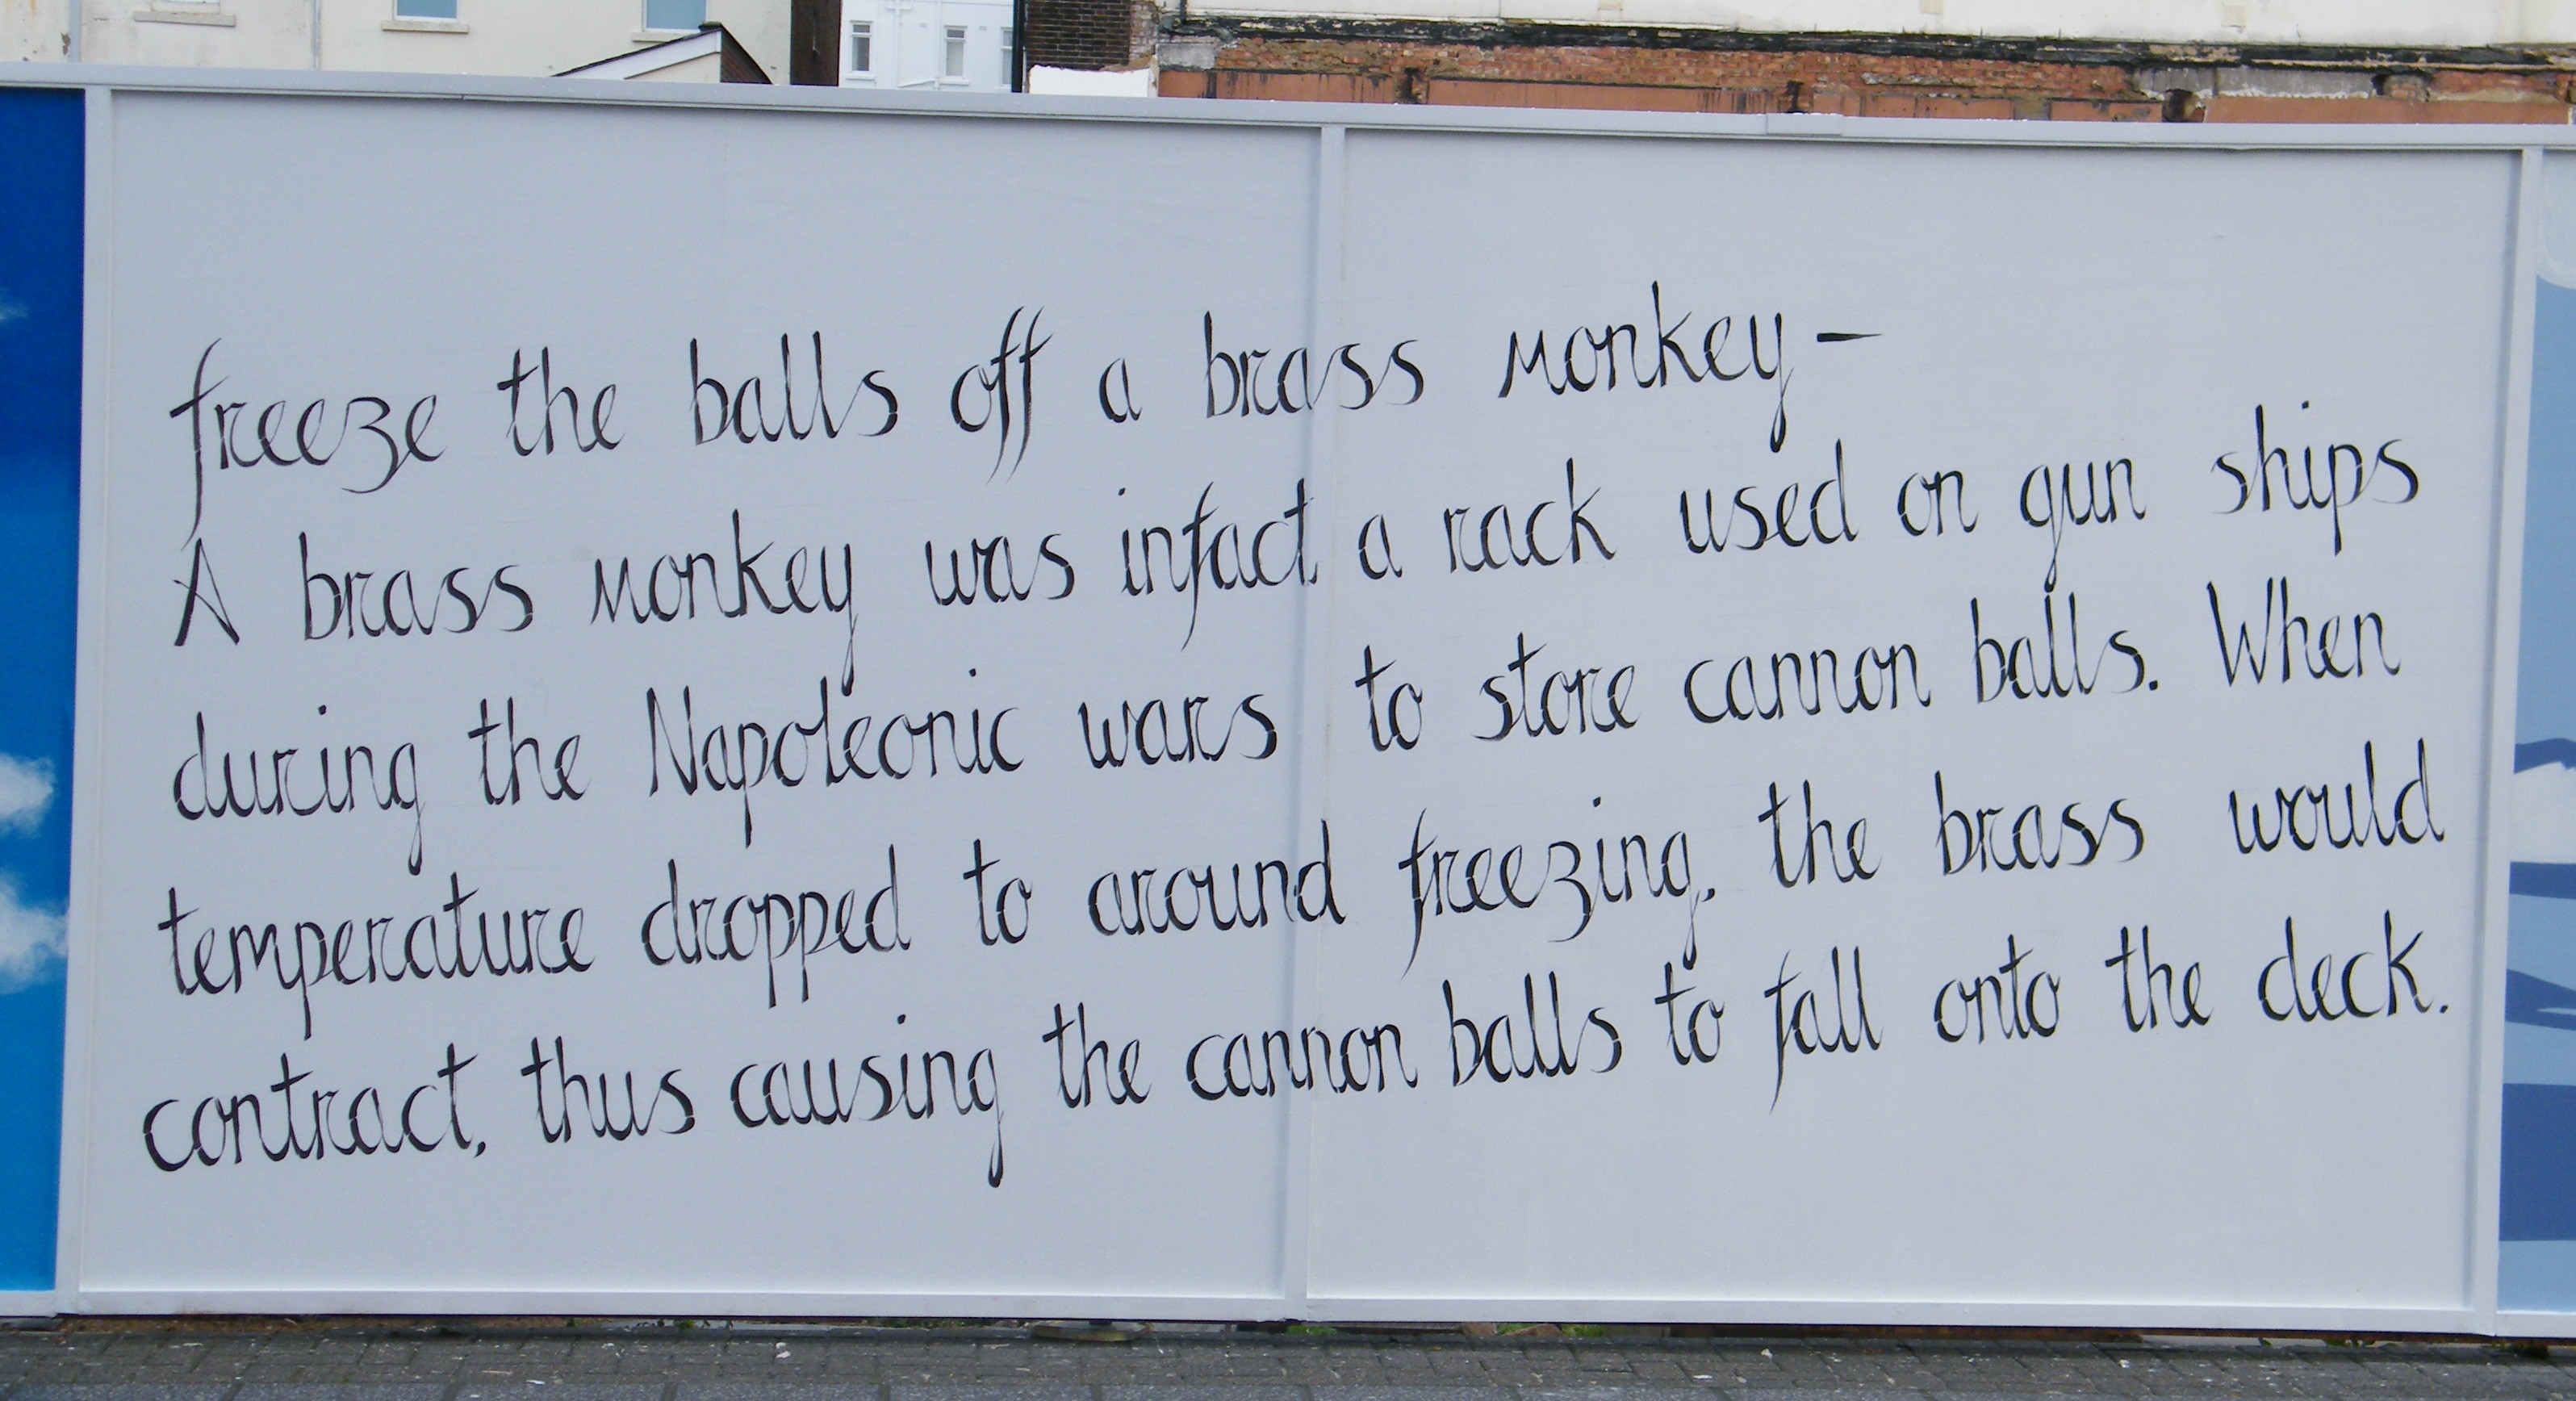 freeze the balls off a brass monkey –
A brass monkey was infact a rack used on gun ships
during the Napoleonic wars to store cannon balls. When
temperature dropped to around freezing, the brass would
contract, thus causing the cannon balls to fall onto the deck.